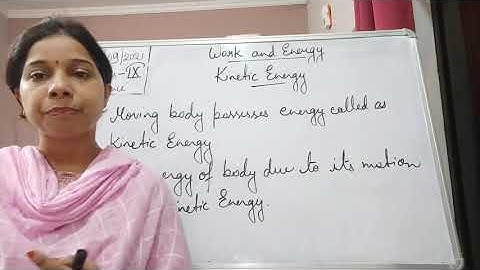 9/2021
Work and Energy
IX
Kinetic Energy
Moving body possesses energy called as
Kinetic Energy
ergy of body due to its motion
inetic Energy.